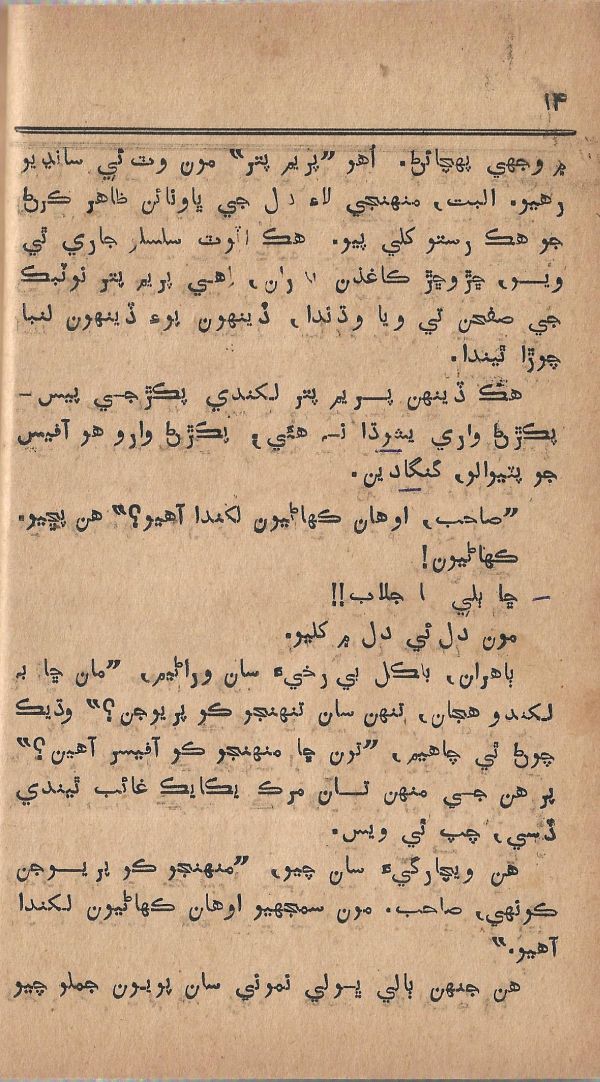 ۱۴
۾ وجهي پهچائڻ. اُهو ”پريم پتر“ مون وٽ ئي سانڍيو
رهيو. البت، منهنجي لاءِ دل جي ڀاونائن ظاهر ڪرڻ
جو هڪ رستو کلي پيو. هڪ اڻوٽ سلسلو جاري ٿي
ويو، چڙوچڙ ڪاغذن تان، اهي پريم پتر نوٽبڪ
جي صفحن تي ويا وڌندا، ڏينهون پوءِ ڏينهون لنبا
چوڙا ٿيندا.
هڪ ڏينهن پريم پتر لکندي پڪڙجي پيس –
پڪڙڻ واري يشوڌا نہ هئي، پڪڙڻ وارو هو آفيس
جو پٽيوالو، گنگادين.
”صاحب، اوهان ڪهاڻيون لکندا آهيو؟“ هن پڇيو.
ڪهاڻيون!
– ڇا ٻلي ا جلاب!!
مون دل ئي دل ۾ کليو.
ٻاهران، باڪل بي رخيءَ سان وراڻيم، ”مان ڇا بہ
لکندو هجان، تنهن سان تنهنجو ڪو پريوجن؟“ وڌيڪ
چوڻ ٿي چاهيم، ”تون ڇا منهنجو ڪو آفيسر آهين؟“
پر هن جي منهن تان مرڪ يڪايڪ غائب ٿيندي
ڏسي، چپ ٿي ويس.
هن ويچارگيءَ سان چيو، ”منهنجو ڪو پريوجن
ڪونهي، صاحب. مون سمجهيو اوهان ڪهاڻيون لکندا
آهيو.“
هن جنهن ٻالي ڀولي نموني سان پويون جملو چيو